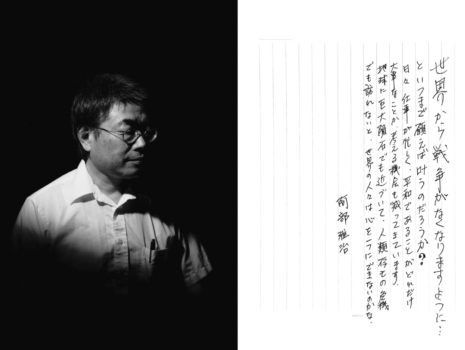 世界から戦争がなくなりますように…
といつまで願えば叶うのだろうか?
日々、仕事が忙しく、平和であることがどれだけ
大事なことか考える機会も減ってきています。
地球に巨大隕石でも近づいて、人類存亡の危機
でも訪れないと、世界の人々は心を一つにできないのかな。
阿部雅治